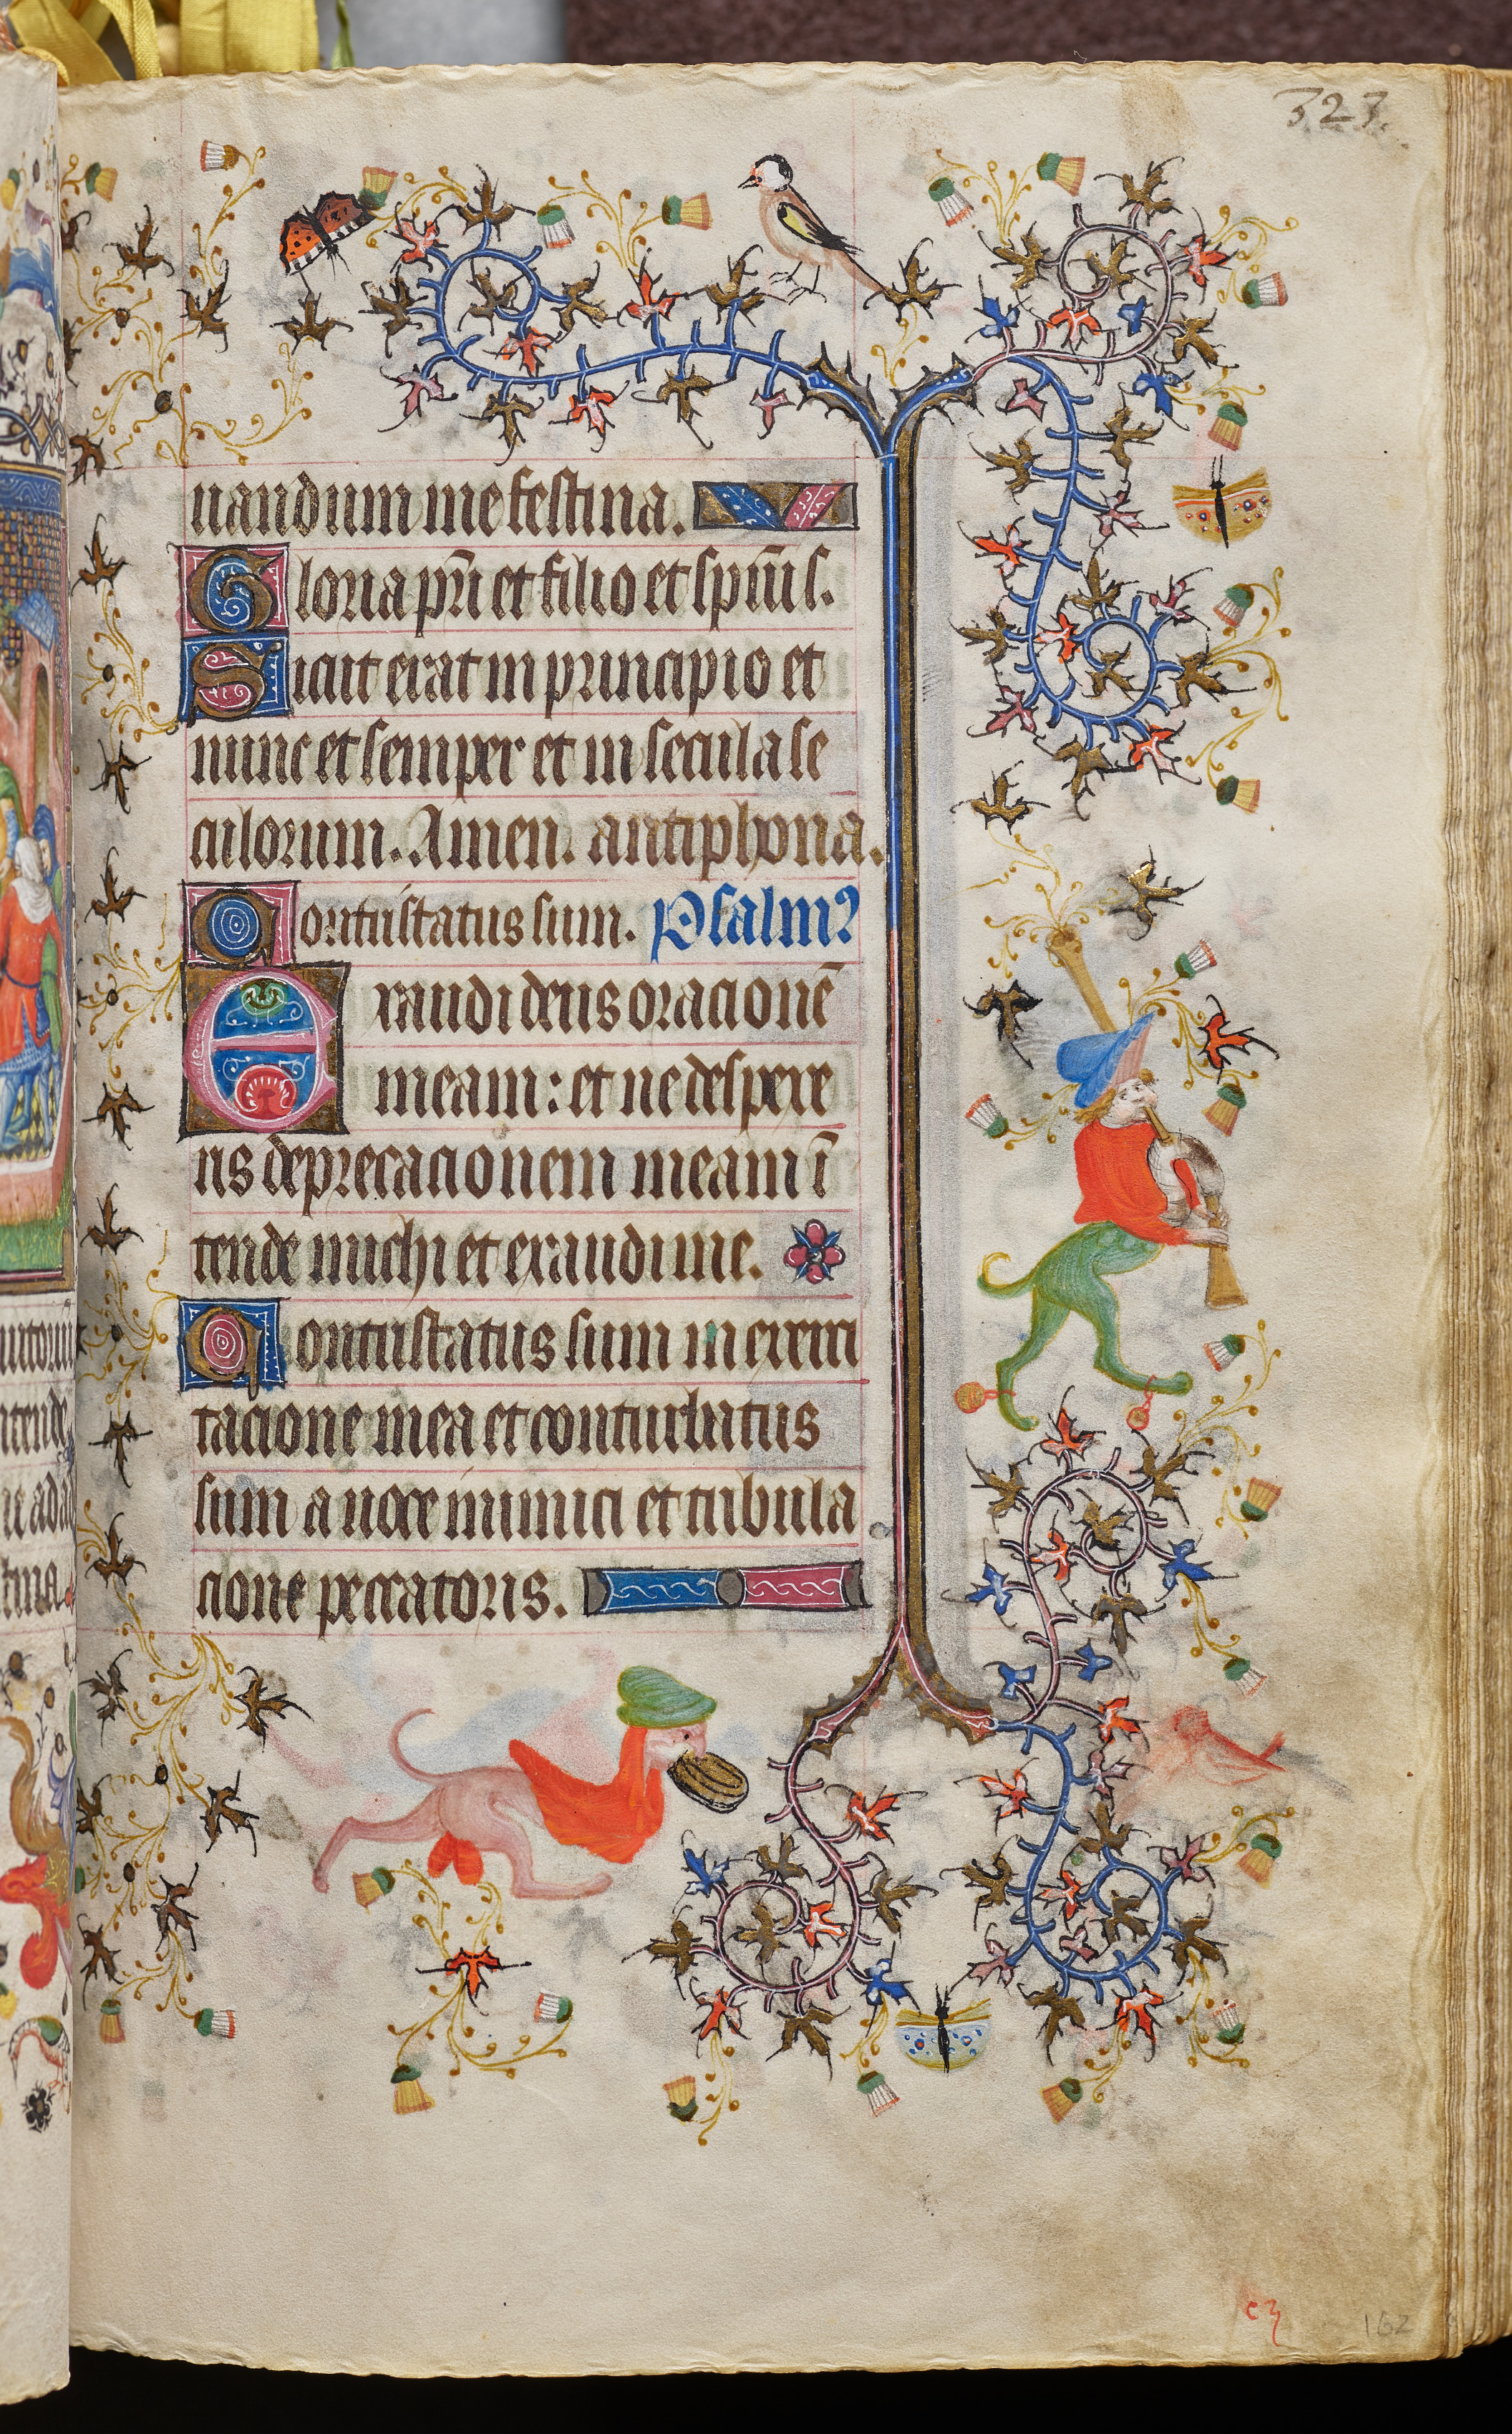 323.
uandum me festina.
Gloria pr̄i et filio et spūi s.
Sicut erat in principio et
nunc et semper et in secula se
culorum. Amen. antiphona.
Contristatus sum. Psalmꝰ
Exaudi deus oracionē
meam: et ne despexe
ris deprecacionem meam ī
tende michi et exaudi me.
Contristatus sum in exerci
tacione mea et conturbatus
sum a uoce inimici et tribula
cione peccatoris.
162